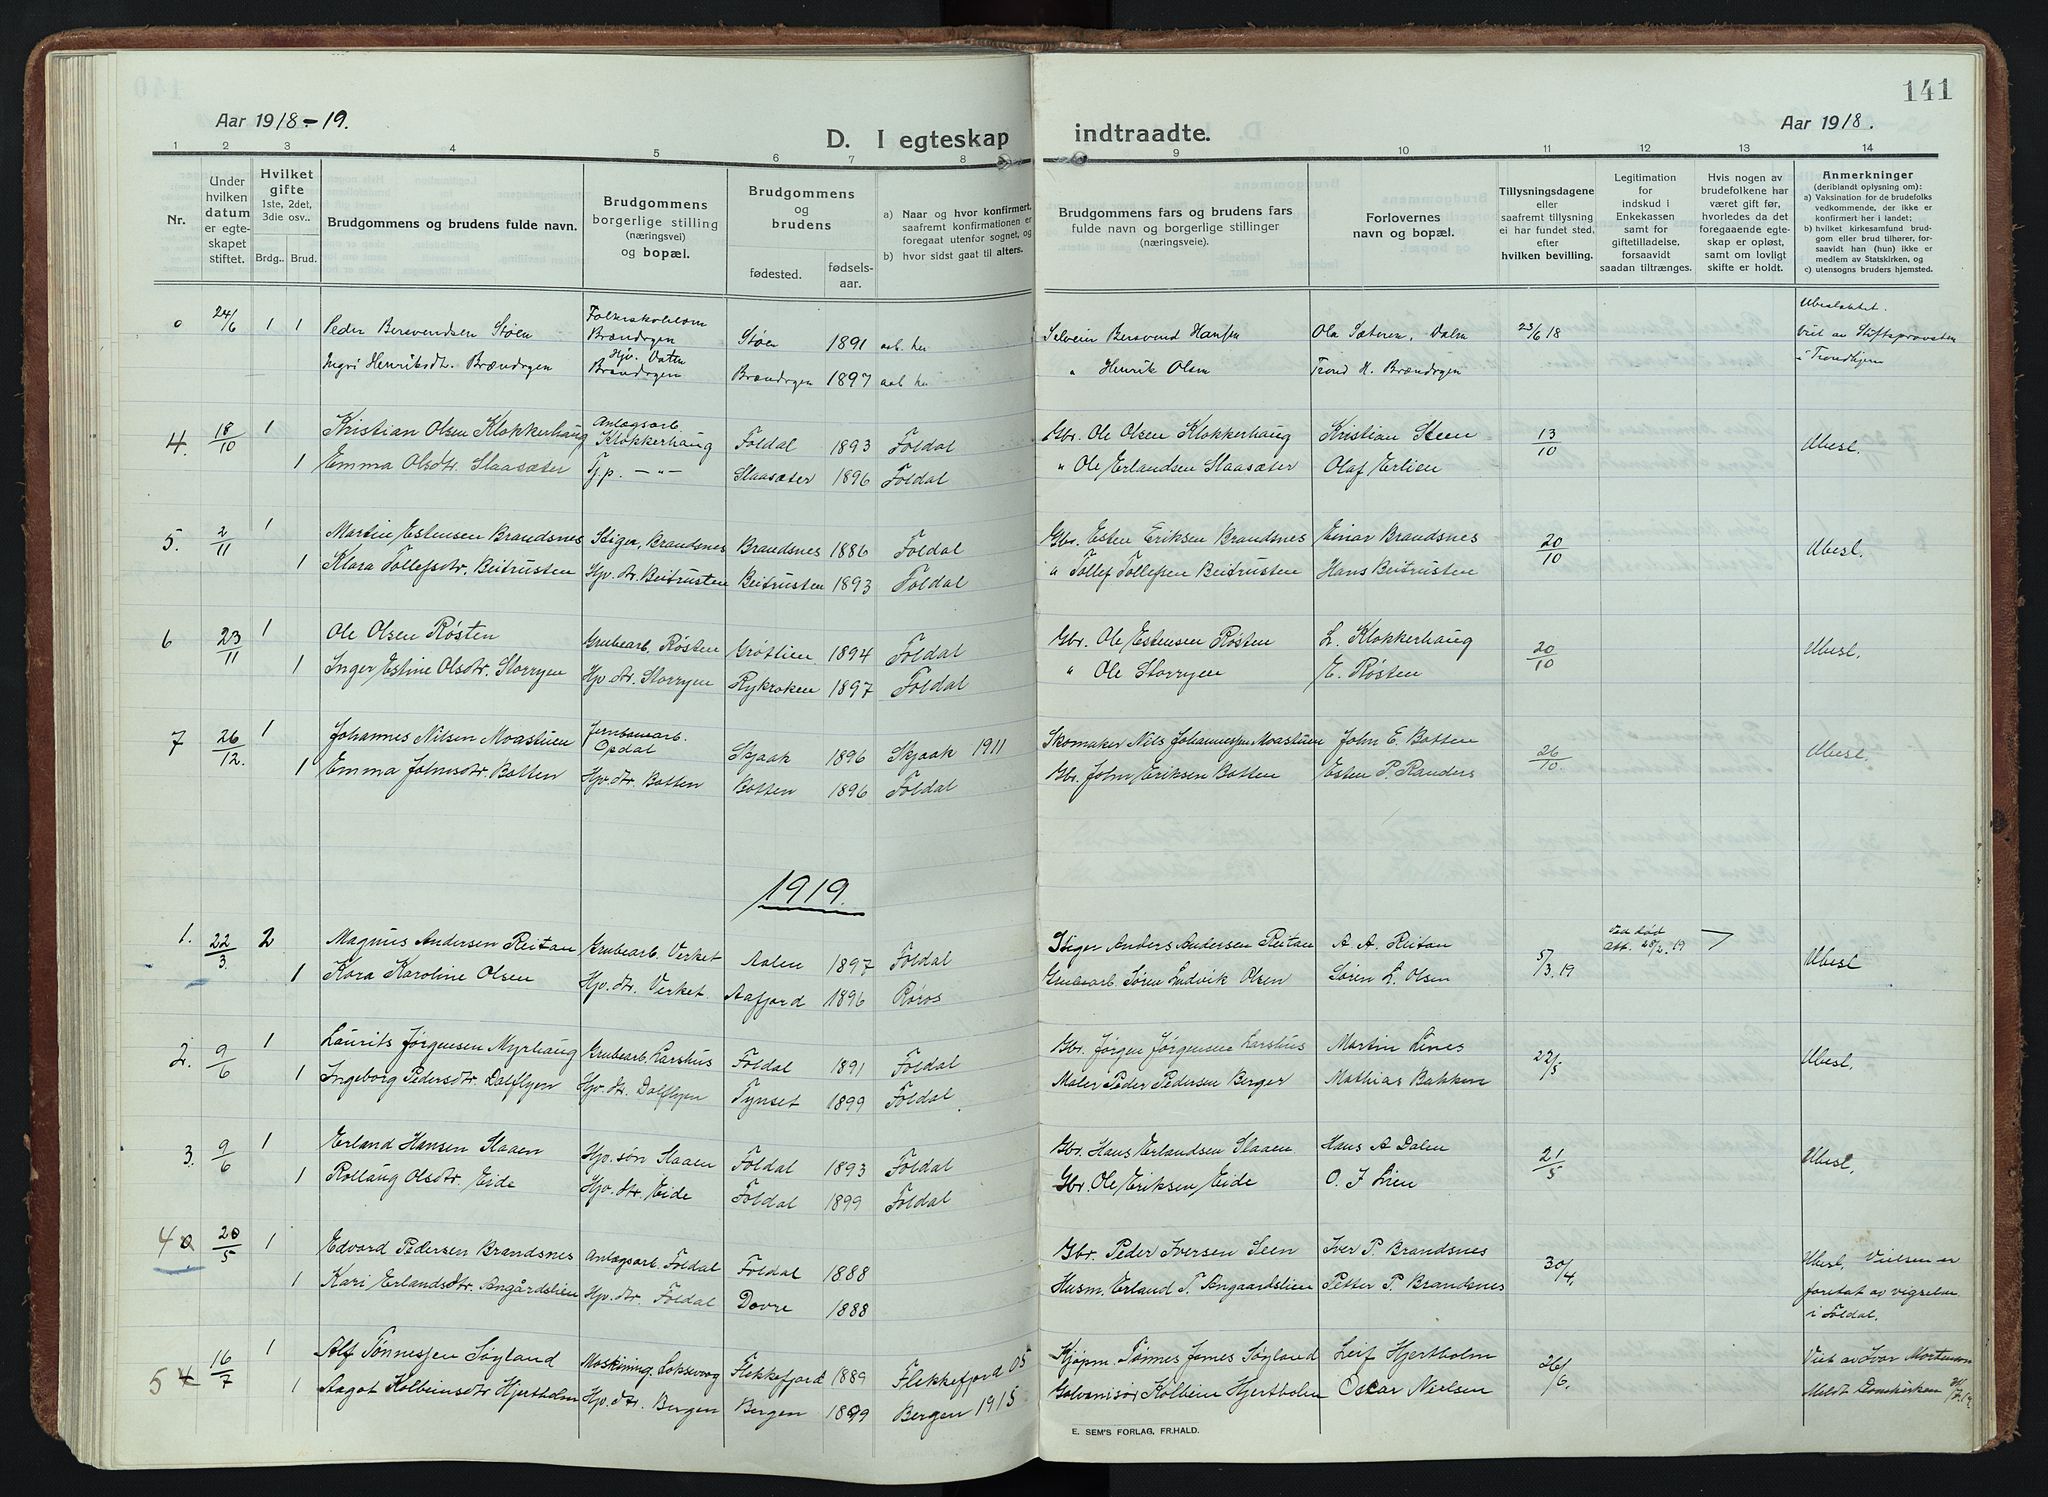 141
Aar 1918-19.
D. I egteskap indtraadte.
Aar 1918.
1 2 3 4 5 6 7 8 9 10 11 12 13 14
Nr.
Under hvilken datum er egteskapet stiftet.
Hvilket gifte 1ste, 2det, 3die osv..
Brdg.. Brud.
Brudgommens og brudens fulde navn.
Brudgommens borgerlige stilling (næringsvei) og bopæl.
Brudgommens og brudens
fødested.
fødsels-aar.
a) Naar og hvor konfirmert, saafremt konfirmationen er foregaat utenfor sognet, og
b) hvor sidst gaat til alters.
Brudgommens fars og brudens fars fulde navn og borgerlige stillinger (næringsveie).
Forlovernes navn og bopæl.
Tillysningsdagene eller saafremt tillysning ei har fundet sted, efter hvilken bevilling.
Legitimation for indskud i Enkekassen samt for giftetilladelse, forsaavidt saadan tiltrænges.
Hvis nogen av brudefolkene har været gift før, hvorledes da det foregaaende egteskap er opløst, samt om lovligt skifte er holdt.
Anmerkninger (deriblandt oplysning om): a) Vaksination for de brudefolks vedkommende, der ikke er konfirmert her i landet; b) hvilket kirkesamfund brudgom eller brud tilhører, forsaavidt han (hun) ikke er medlem av Statskirken, og c) utensogns bruders hjemsted.
0 24/6 1 1 Peder Bersvendsen Støen Brændryen Støen 1891 Selveier Bersvend Hansen Ola Sæteren, Dalen 23/6 18 Ubeslektet. Viet av Stiftsprovsten i Trondhjem
Ingri Henriksdt. Brændryen Brændryen Brændryen 1897 " Henrik Olsen Trond H. Brændryen
4. 18/10 1 Kristian Olsen Klokkerhaug Anlægsarb. Klokkerhaug Foldal 1893 Foldal Gbr. Ole Olsen Klokkerhaug Kristian Steen 13/10 Ubesl.
1 Emma Olsdtr. Slaasæter Tj.p. -"- Slaasæter 1896 Foldal " Ole Erlandsen Slaasæter Olaf Erlien
5. 2/11 1 Martin Estensen Brandsnes Stiger, Brandsnes Brandsnes 1886 Foldal Gbr. Esten Eriksen Brandsnes Einar Brandsnes 20/10 Ubesl.
1 Klara Tollefsdtr. Beitrusten Hp. dtr. Beitrusten Beitrusten 1893 Foldal " Tollef Tollefsen Beitrusten Hans Beitrusten
6 23/11 1 Ole Olsen Røsten Grubearb. Røsten Grøtlien 1894 Foldal Gbr. Ole Estensen Røsten L. Klokkerhaug 20/10 Ubesl.
1 Inger Estine Olsdtr. Storryen Hp. dtr. Storryen Rykroken 1897 Foldal " Ole Storryen E. Røsten
7 26/12. 1 Johannes Nilsen Moastuen Jernbanearb. Opdal Skjaak 1896 Skjaak 1911 Skomaker Nils Johannessen Moastuen John E. Botten 26/10. Ubesl.
1 Emma Johnsdtr. Botten Hp. dtr. Botten Botten 1896 Foldal Gbr. John Eriksen Botten Esten P. Randers
1919.
1. 22/3. 2 Magnus Andersen Reitan Grubearb. Verket Aalen 1897 Foldal Stiger Anders Andersen Reitan A. A. Reitan 5/3. 19 ved død att. 28/2. 19 Ubesl
1 Kara Karoline Olsen Hp. dtr. Verket. Aafjord 1896 Røros Grubearb. Søren Ludvik Olsen Søren L. Olsen
2. 9/6 1 Laurits Jørgensen Myrhaug Grubearb. Larshus Foldal 1891 Foldal Gbr. Jørgen Jørgensen Larshus Martin Lines 22/5 Ubesl.
1 Ingeborg Pedersdtr. Dalflyen Hp. dtr. Dalflyen Tynset 1899 Foldal. Maler Peder Pedersen Berger Mathias Bakken
3. 9/6 1 Erland Hansen Slaaen Hp. søn Slaaen Foldal 1893 Foldal Gbr. Hans Erlandsen Slaaen Hans A Dalen 21/5 Ubesl.
1 Rollaug Olsdtr. Eide Hp. dtr. Eide Foldal 1899 Foldal Gbr. Ole Eriksen Eide O. J Lien
40 20/5 1 Edvard Pedersen Brandsnes Anlægsarb. Foldal Foldal 1888 Gbr. Peder Iversen Seen Iver P. Brandsnes 30/4. Ubesl. Vielsen er foretat av vigselm i Foldal.
1 Kari Erlandsdtr. Angårdslien Hp. dtr. Foldal Dovre 1888 Husm. Erland T. Angaardslien Petter P. Brandsnes
5 4 16/7 1 Alf Tønnessen Søyland Maskining. Loksevaag Flekkefjord 1889 Flekkefjord 05 Kjøpm. Tønnes James Søyland Leif Hjertholm 26/6. Viet av Ivar Mortenson
1 Aagot Kolbeinsdtr Hjertholm Hp. dtr. Bergen Bergen 1899 Bergen 1915 Galvanisør Kolbein Hjertholm Oscar Nielsen Meldt Domkirken
E. SEM'S FORLAG, FR.HALD.